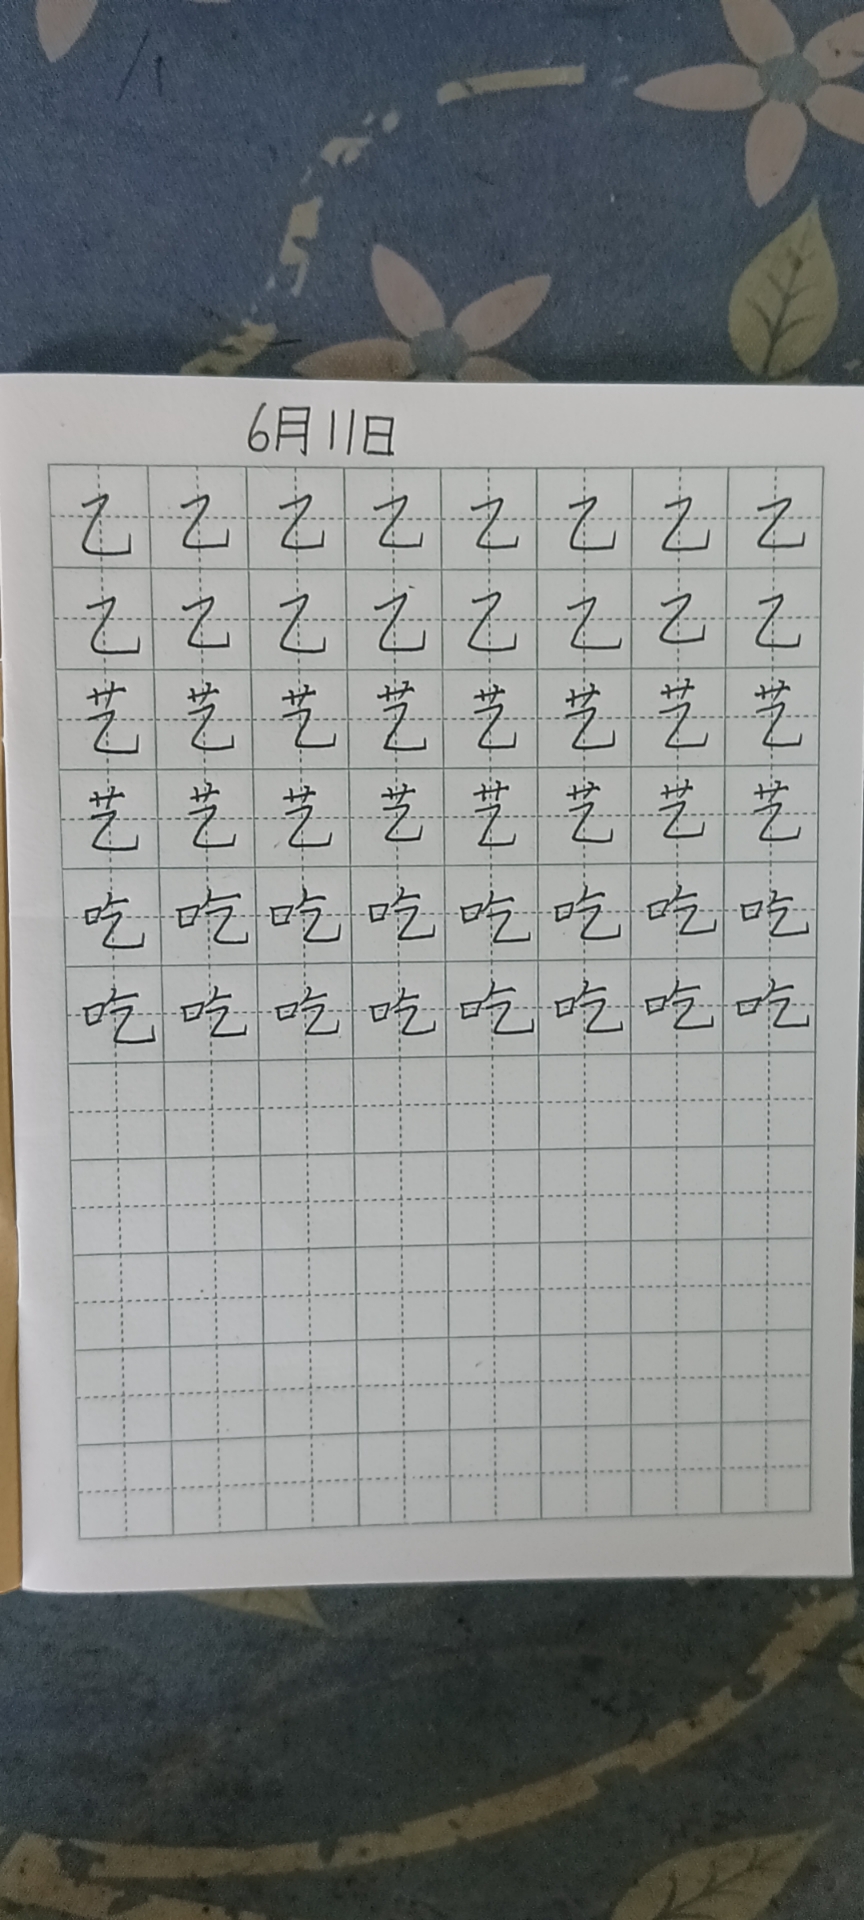 6月11日
乙乙乙乙乙乙乙乙
乙乙乙乙乙乙乙乙
艺艺艺艺艺艺艺艺
艺艺艺艺艺艺艺艺
吃吃吃吃吃吃吃吃
吃吃吃吃吃吃吃吃